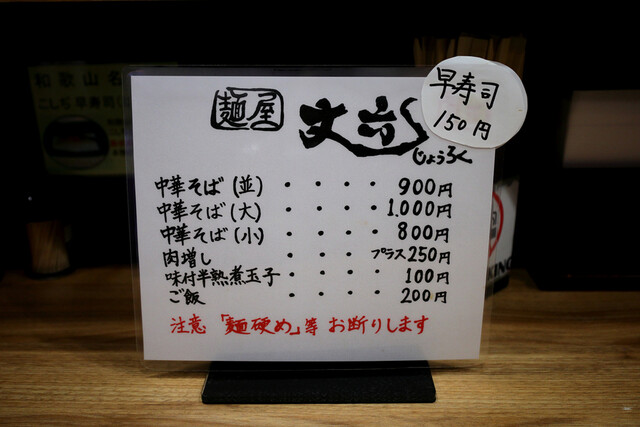 和歌山名
こしぢ早寿司
早寿司
150円
麺屋 丈六
じょうろく
中華そば(並)・・・・900円
中華そば(大)・・・・1.000円
中華そば(小)・・・・800円
肉増し・・・・プラス250円
味付半熟煮玉子・・・・100円
ご飯・・・・200円
注意「麺硬め」等お断りします